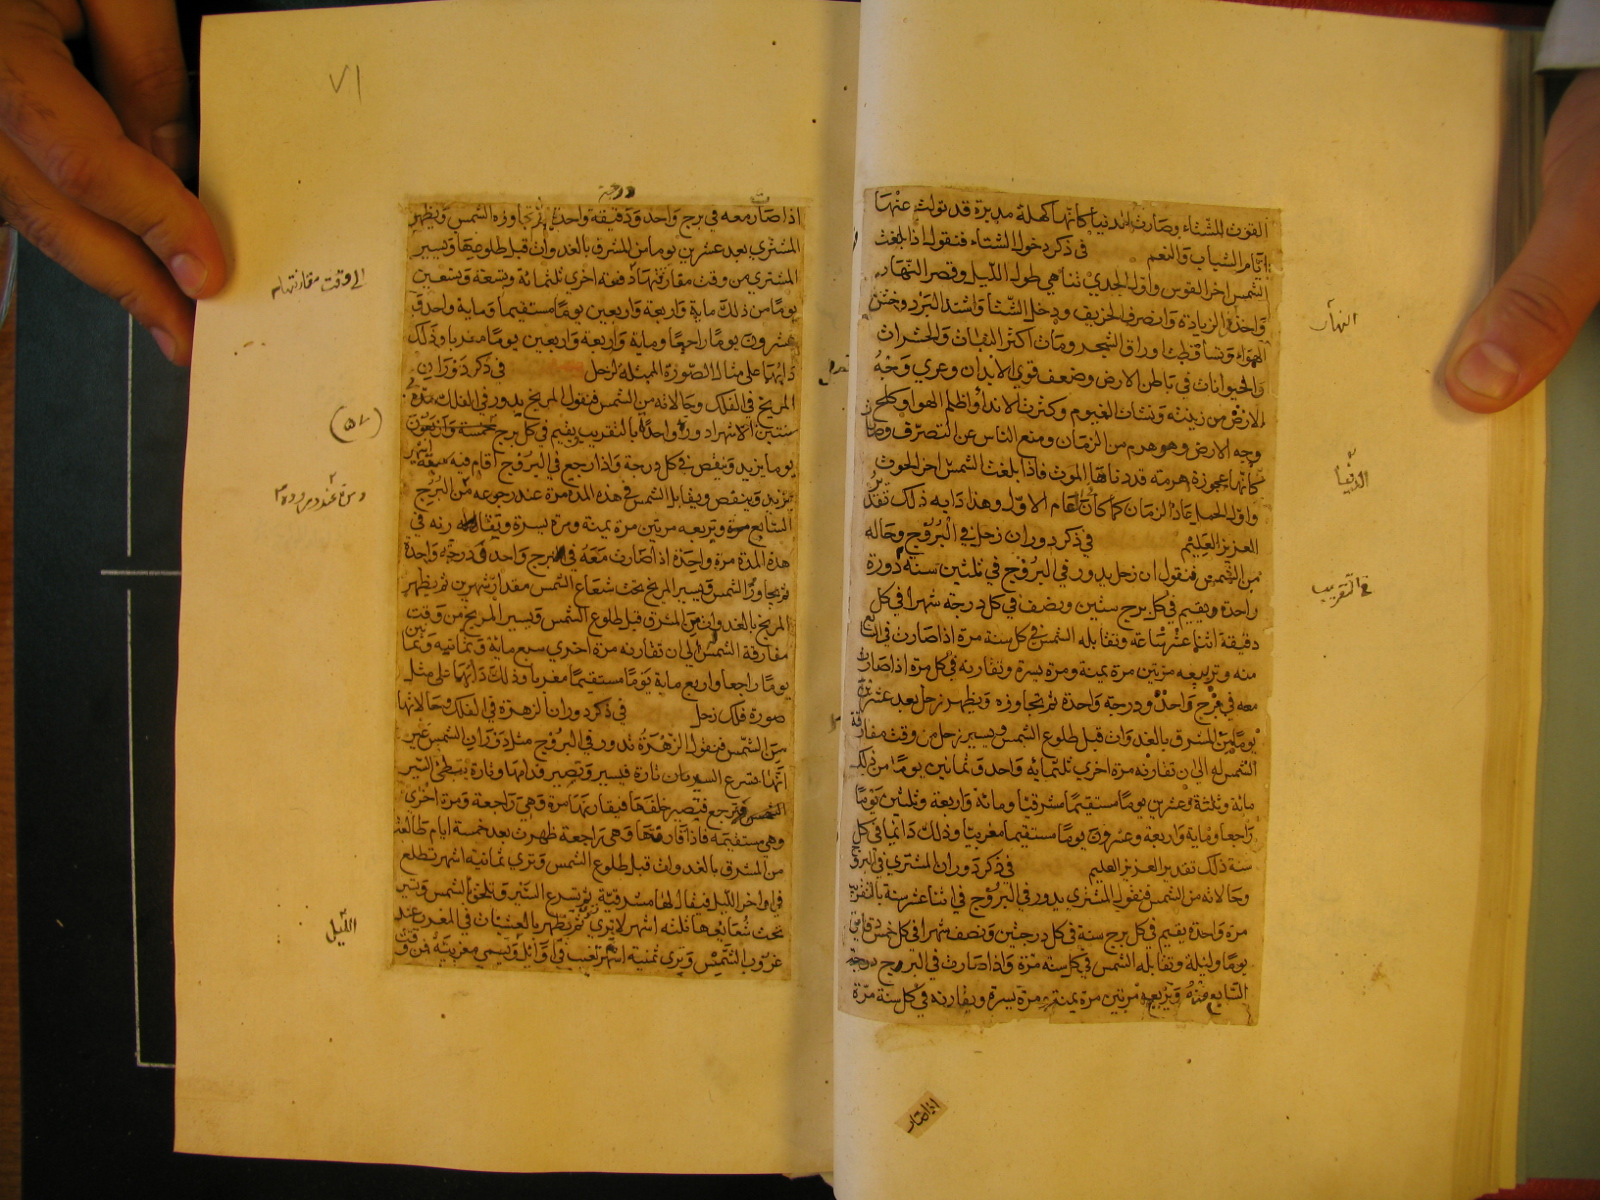 القوت للشتاء وصارت الدنيا كانها كهلة مدبرة قد تولت عنها
ايام الشباب والنعم في ذكر دخول الشتاء فنقول اذا بلغت
الشمس اخر القوس واول الجدي تناهي طول الليل وقصر النهار
واخذ في الزيادة وانصرف الخريف ودخل الشتا واشتد البرد وخشن
الهواء وتساقطت اوراق الشجر ومات اكثر النبات والحشرات
والحيوانات في باطن الارض وضعف قوي الابدان وعري وجه
الارض من زينته ونشات الغيوم وكثرت الاندا واظلم الهوا وكلح
وجه الارض وهو هرم من الزمان ومنع الناس عن التصرف وصار
كانها عجوزة هرمة قد دنا لها الموت فاذا بلغت الشمس اخر الحوت
واول الحمل عاد الزمان كما كان العام الاول وهذا دابه ذلك تقدير
العزيز العليم في ذكر دوران زحل في البروج وحاله
من الشمس فنقول ان زحل يدور في البروج في ثلثين سنة دورة
واحدة ويقيم في كل برج سنتين ونصف في كل درجة شهرا في كل
دقيقة اثنا عشر ساعة وتقابله الشمس في كل سنة مرة اذا صارت في السابع
منه وتربيعه مرتين مرة يمنة ومرة يسرة وتقارنه في كل مرة اذا صارت
معه في برج واحد ودرجة واحدة ثم تجاوزه ويظهر زحل بعد عشرين
يوما من المشرق بالغدوات قبل طلوع الشمس ويسير زحل من وقت مفارقة
الشمس له الي ان تقارنه مرة اخري ثلثمائة واحد وثمانين يوما من ذلك
مائة وثلثة وعشرين يوما مستقيما مشرقيا ومائة واربعة وثلثين يوما
راجعا ومائة واربعة وعشرون يوما مستقيما مغربيا وذلك دائما في كل
سنة ذلك تقدير العزيز العليم في ذكر دوران المشتري في البروج
وحالاته من الشمس فنقول المشتري يدور في البروج في اثنا عشر سنة بالتقريب
مرة واحدة يقيم في كل برج سنة في كل درجتين ونصف شهرا في كل خمس دقائق
يوما وليلة وتقابله الشمس في كل سنة مرة واذا صارت في البرج
السابع منه وتربعه مرتين مرة يمنة ومرة يسرة ويقارنه في كل سنة مرة
النهار
الدنيا
في التقريب
اذا صار
٧١
درجة
اذا صار معه في برج واحد ودقيقة واحدة ثم تجاوزه الشمس ويظهر
المشتري بعد عشرين يوما من المشرق بالغدوات قبل طلوعها ويسير
المشتري من وقت مفارقتها دفعة اخري ثلثمائة وتسعة وتسعين
يوما من ذلك ماية واربعة واربعين يوما مستقيما وماية واحد و
عشرون يوما راجعا وماية واربعة واربعين يوما مغربا وذلك
دائما على مثال الصورة الممثلة لزحل في ذكر دوران
المريخ في الفلك وحالاته من الشمس فنقول المريخ يدور في الفلك مدة
سنتين الا شهرا دورا واحدا بالتقريب يقيم في كل برج خمسة واربعون
يوما يزيد وينقص في كل درجة واذا رجع في البروج اقام فيه
يزيد وينقص ويقابل الشمس في هذه المدة مرة عند رجوعه من البرج
السابع مرة وتربعه مرتين مرة يمنة ومرة يسرة وتقارنه في
هذه المدة مرة واحدة اذا صارت معه في برج واحد في درجة واحدة
ثم يجاوز الشمس ويسير المريخ تحت شعاع الشمس مقدار شهرين ثم يظهر
المريخ بالغدوات من المشرق قبل طلوع الشمس ويسير المريخ من وقت
مفارقة الشمس الي ان تقارنه مرة اخري سبع مائة وثمانية وثمانين
يوما راجعا واربع ماية يوما مستقيما مغربا وذلك دائما على مثل
صورة فلك زحل في ذكر دوران الزهرة في الفلك وحالاتها
من الشمس فنقول الزهرة تدور في البروج مثل دوران الشمس غير
انها تسرع السير تارة فيسير وتصير قدامها وتارة تبطئ السير
فترجع فتصير خلفها فيقارنها مرة وهي راجعة ومرة اخرى
وهي مستقيمة فاذا قارنتها وهي راجعة ظهرت بعد خمسة ايام طالعة
من المشرق بالغدوات قبل طلوع الشمس وتري ثمانية اشهر تطلع
في اواخر الليل فيقال لها مشرقية ثم تسرع السير وتلحق الشمس وتسير
تحت شعاعها ثلثه اشهر لا تري ثم تظهر بالعشيات في المغرب عند
غروب الشمس وتري ثمنية اشهر تغيب في اوايل وتسمى مغربية فمن وقت
الي وقت مقارنتها له
(٥٧)
الليل